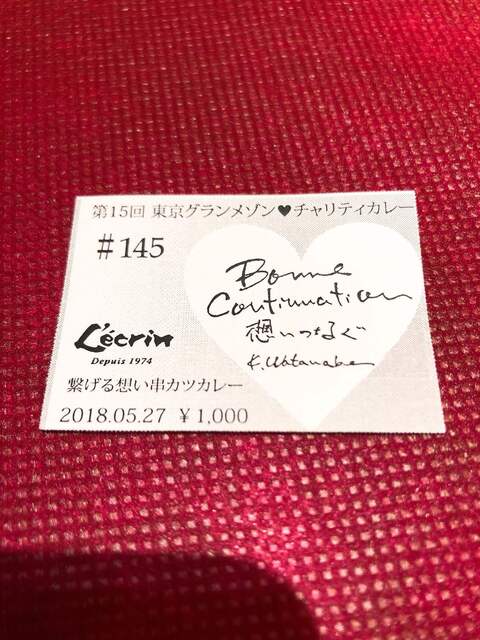 第15回 東京グランメゾン♥チャリティカレー
#145
Bonne
Continuation
想いつなぐ
K.Watanabe
L'écrin
Depuis 1974
繋げる想い串カツカレー
2018.05.27 ¥1,000